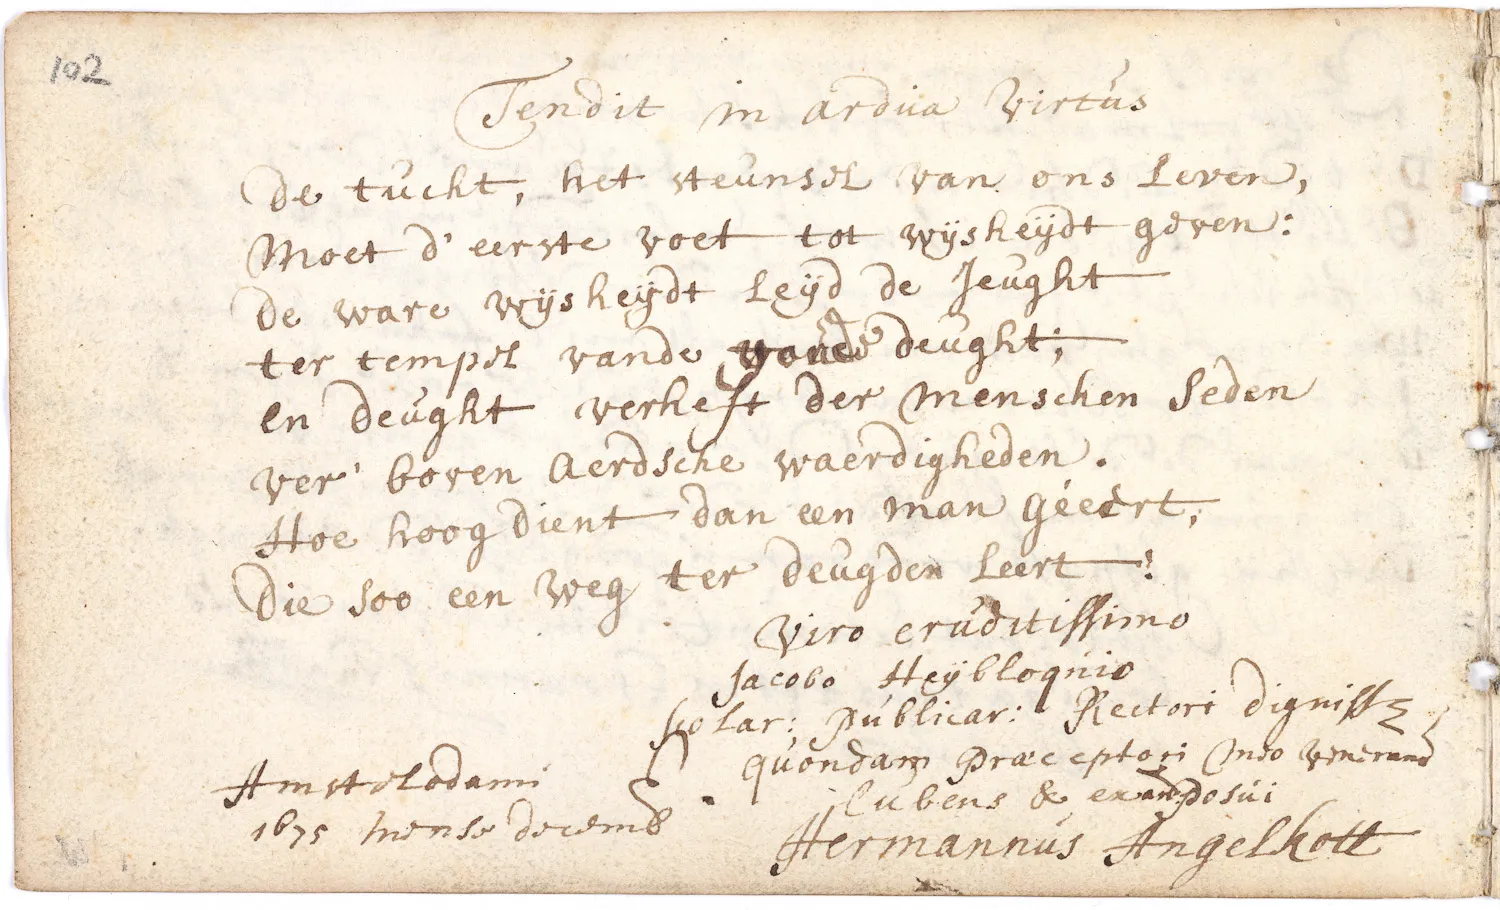 102
Tendit in ardua Virtus
De tucht, het steunsel van ons Leven,
Moet d' eerste voet tot wÿsheÿdt geven:
De ware wÿsheÿdt Leÿd de Jeught
ter tempel vande deught;
en deught verheft der menschen Seden
ver' boven Aerdsche waerdigheden.
Hoe hoog dient dan een man geëert,
Die soo een weg ter deugden Leert!
Viro eruditissimo
Jacobo Heÿbloqúio
Scolar: Públicar: Rectori digniss
quondam Præceptori meo venerand
Lubens &
Hermannús Angelkott
Amstelodami
1675 mense decemb